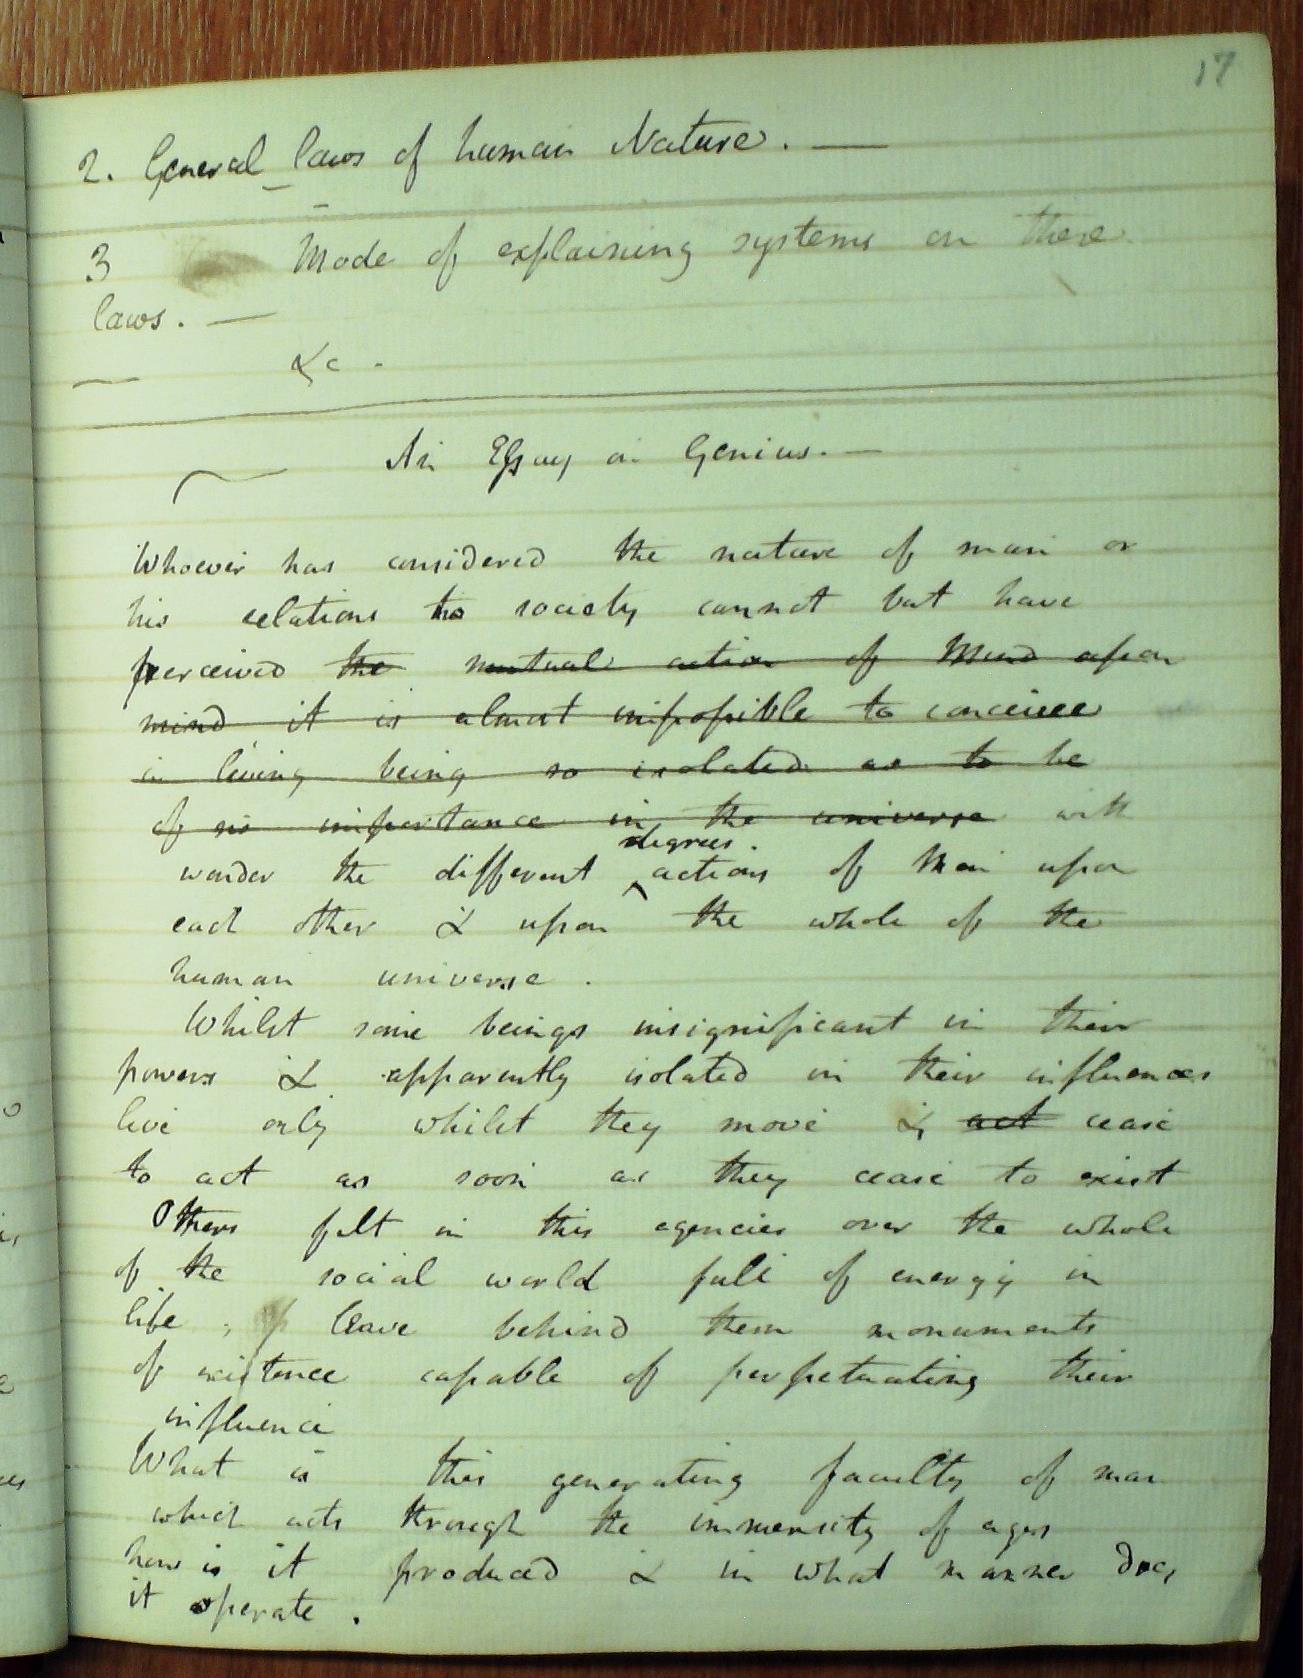 17
2. General laws of human Nature. —
3 Mode of explaining systems on these
laws. —
&c -
An Essay on Genius. —
Whoever has considered the nature of man or
his relations to society cannot but have
perceived the mutual action of Mind upon
mind it is almost impossible to conceive
a living being so isolated as to be
of no importance in the universe with
degrees.
wonder the different ^ actions of Man upon
each other & upon the whole of the
human universe.
Whilst some beings insignificant in their
powers & apparently isolated in their influences
live only whilst they move & act cease
to act as soon as they cease to exist
Others felt in this agencies over the whole
of the social world full of energy in
life, leave behind them monuments
of existence capable of perpetuating their
influence
What is this generating faculty of man
which acts through the immensity of ages
how is it produced & in what manner does
it operate.